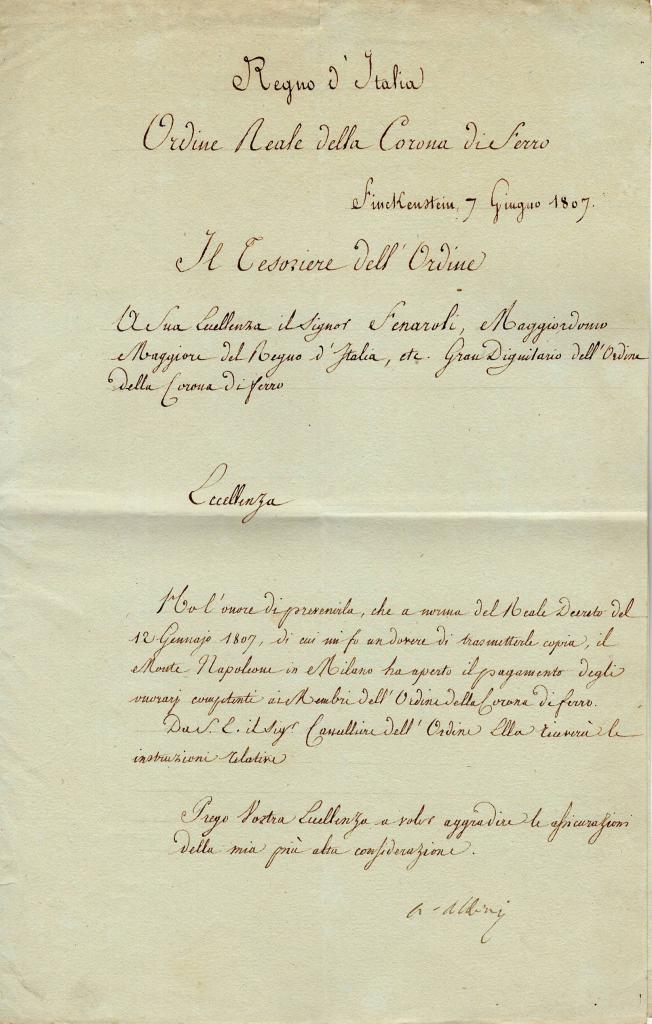 Regno d'Italia
Ordine Reale della Corona di Ferro
Finckenstein, 7 Giugno 1807.
Il Tesoriere dell'Ordine
A Sua Eccellenza il Signor Fenaroli, Maggiordomo
Maggiore del Regno d'Italia, etc. Gran Dignitario dell'Ordine
della Corona di ferro
Eccellenza
Ho l'onore di prevenirla, che a norma del Reale Decreto del
12 Gennajo 1807, di cui mi fo un dovere di trasmetterle copia, il
Monte Napoleone in Milano ha aperto il pagamento degli
onorarj competenti ai Membri dell'Ordine della Corona di ferro.
Da S. E. il Sigr Cancelliere dell'Ordine Ella riceverà le
instruzioni relative
Prego Vostra Eccellenza a voler aggradire le assicurazioni
della mia più alta considerazione.